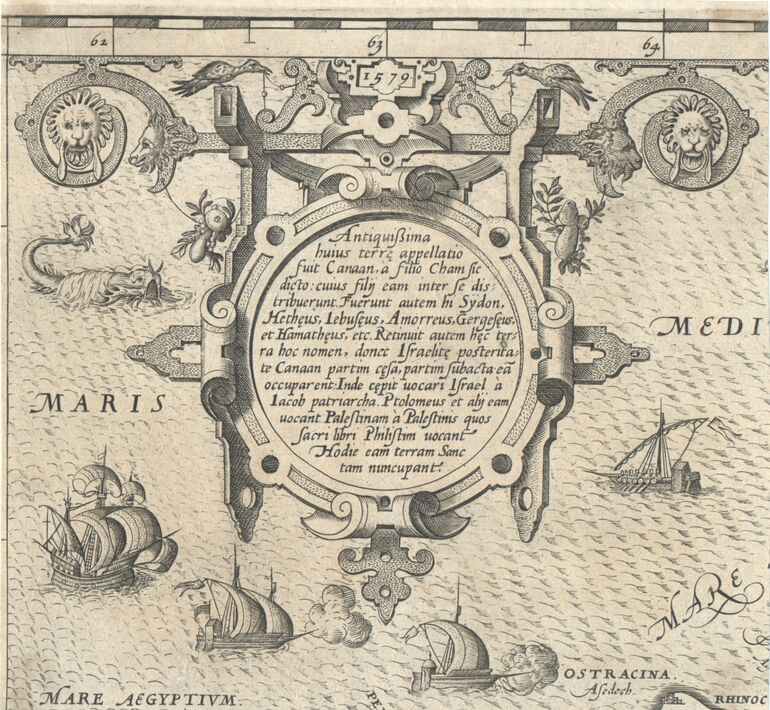 62 63 64
1579.
Antiquißima
huius terrę appellatio
fuit Canaan, a filio Cham sic
dicto: cuius filij eam inter se dis-
tribuerunt. Fuerunt autem hi Sydon,
Hethęus, Iebusęus, Amorreus, Gergesęus,
et Hamathęus, etc. Retinuit autem hęc ter-
ra hoc nomen, donec Israelitę posterita-
te Canaan partim cęsa, partim subacta eā
occuparent: Inde cępit uocari Israel à
Iacob patriarcha. Ptolomeus et alij eam
uocant Palestinam à Palestinis quos
sacri libri Philistim uocant
Hodie eam terram Sanc
tam nuncupant.
MEDI
MARIS
MARE
OSTRACINA.
Asedech.
MARE AEGYPTIVM.
PE
RHINOC